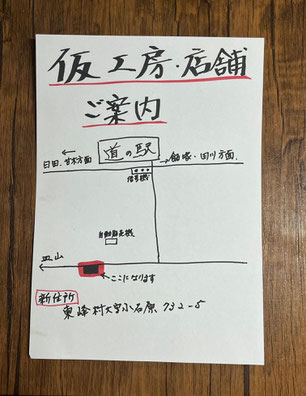 仮工房・店舗
ご案内
道の駅
日田、甘木方面
飯塚・田川方面
信号機
自動販売機
皿山
ここになります
新住所
東峰村大字小石原732-5